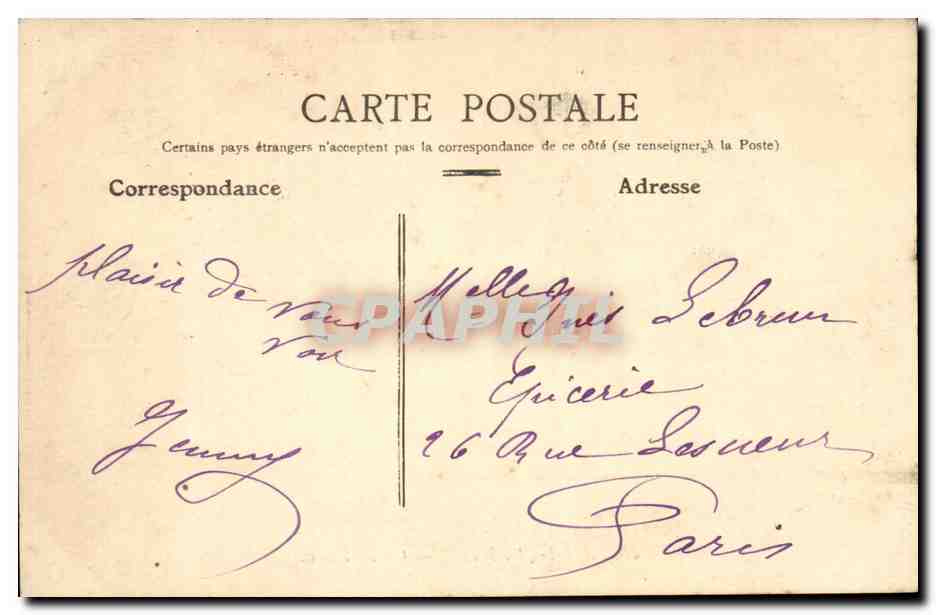 CARTE POSTALE
Certains pays étrangers n'acceptent pas la correspondance de ce côté (se renseigner à la Poste)
Correspondance
Adresse
plaisir de
vous
voir
Jenny
Melle Inès Lebrun
Epicerie
26 Rue Lesueur
Paris
CPAPHIL